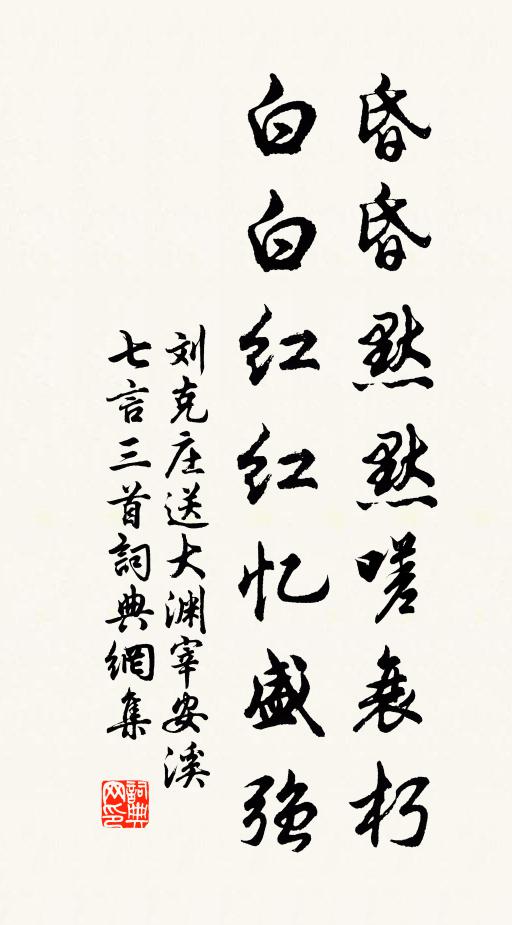 昏昏默默嗟衰朽
白白红红忆盛强
刘克庄送大渊宰安溪
七言三首詞典網集
詞典
网印